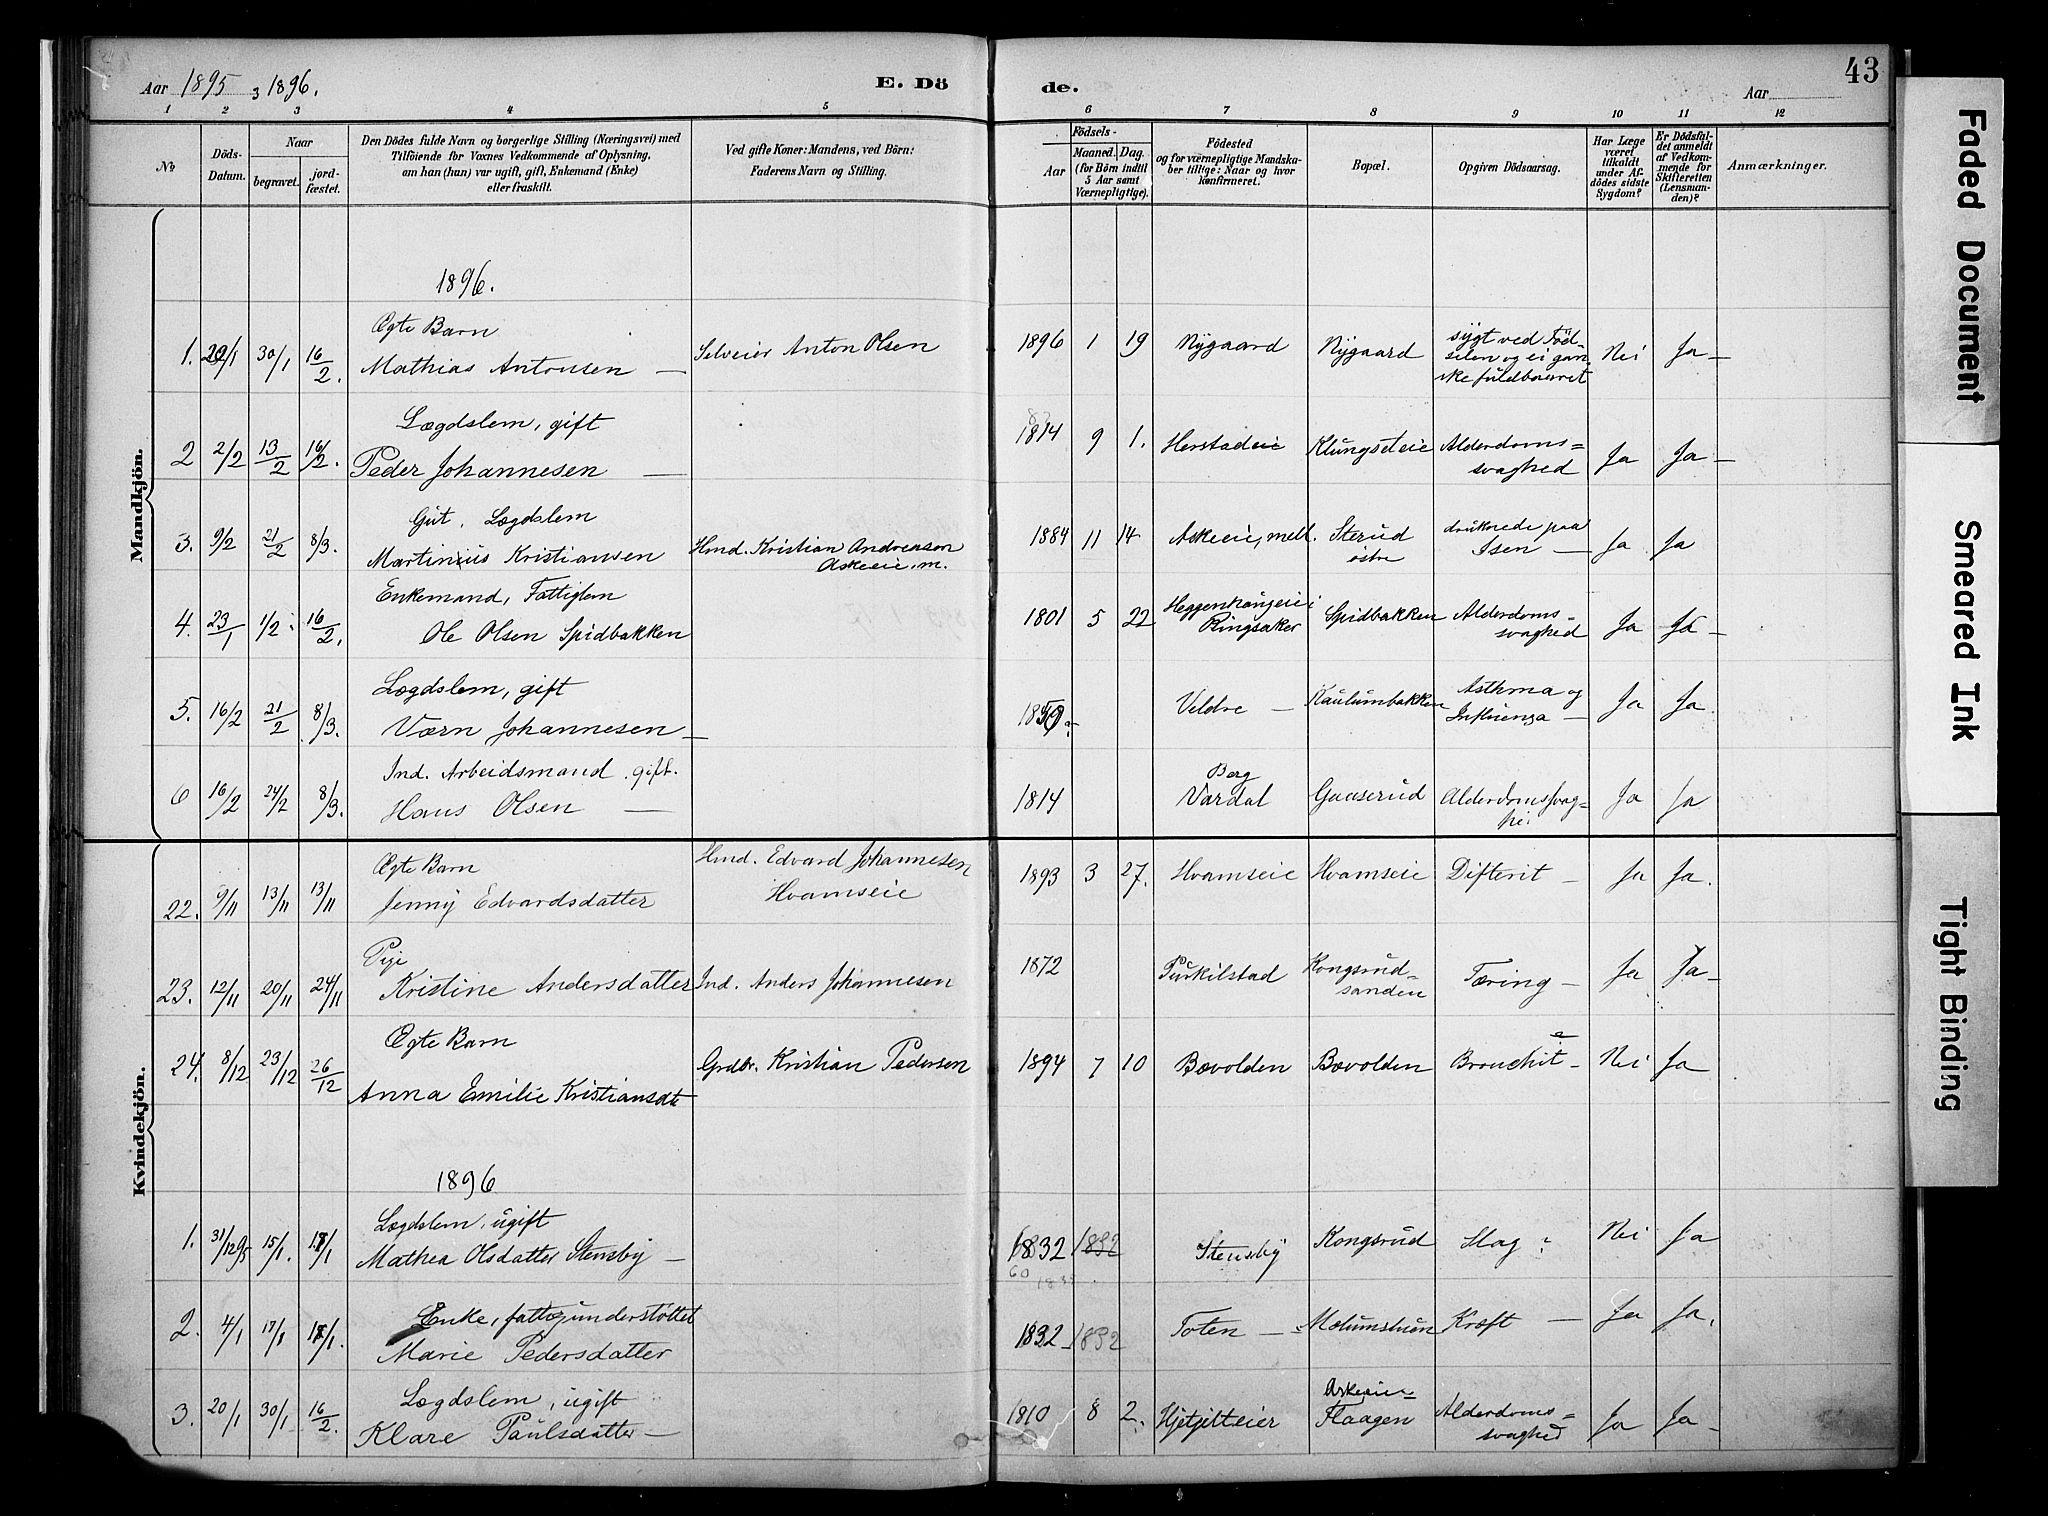 Aar 1895 3 1896.
E. Dö
de.
Aar
43
1 2 3 4 5 6 7 8 9 10 11 12
No
Döds-Datum.
Naar
begravet.
jord-fæstet.
Den Dödes fulde Navn og borgerlige Stilling (Næringsvei) med
Tilföiende for Voxnes Vedkommende af Oplysning,
om han (hun) var ugift, gift, Enkemand (Enke)
eller fraskilt.
Ved gifte Koner: Mandens, ved Börn:
Faderens Navn og Stilling.
Födsels-
Aar
Maaned. Dag.
(for Börn indtil
5 Aar samt
Værnepligtige).
Födested
og for værnepligtige Mandska-
ber tillige: Naar og hvor
konfirmeret.
Bopæl.
Opgiven Dödsaarsag.
Har Læge
været
tilkaldt
under Af-
dödes sidste
Sygdom?
Er Dödsfal-
det anmeldt
af Vedkom-
mende for
Skifteretten
(Lensman-
den)?
Anmærkninger.
Mandkjön.
1896.
Ægte Barn
1. 30/1 16/2. Mathias Antonsen — Selveier Anton Olsen 1896 1 19 Nygaard Nygaard sygt ved Föd-
selen og ei gan-
ske fuldbaaret Nei Ja —
Lægdslem, gift
2 2/2 13/2 16/2. Peder Johannesen — 1814 9 1. Herstadeie Klungsteie Alderdoms=
svaghed Ja Ja —
Gut, Lægdslem
3. 9/2 21/2 8/3. Martinius Kristiansen Hmd. Kristian Andreasen
Askeeie, m. 1884 11 14 Askeeie, mell. Sterud
östre druknede paa
Isen — Ja Ja
Enkemand, Fattiglem
4. 23/1 1/2. 16/2. Ole Olsen Spidbakken 1801 5 22 Heggenhaugeie i
Ringsaker Spidbakken Alderdoms=
svaghed Ja Ja —
Lægdslem, gift
5. 16/2 21/2 8/3. Værn Johannesen — Veldre — Kaulumbakken Asthma og
Influenza — Ja Ja.
Ind. Arbeidsmand. gift.
6 16/2 24/2 8/3. Hans Olsen — 1814 Berg
Vardal Gaaserud Alderdomssvag=
he. Ja Ja
Kvindekjön.
Ægte Barn
22. 9/11 13/11 13/11 Jenny Edvardsdatter Hmd. Edvard Johannesen
Hvamseie 1893 3 27. Hvamseie Hvamseie Difterit — Ja Ja.
Pige
23. 12/11 20/11 24/11 Kristine Andersdatter Ind. Anders Johannesen 1872 Purkilstad Kongsrud=
sanden Tæring — Ja Ja —
Ægte Barn
24. 8/12 23/12 26/12 Anna Emilie Kristiansdt Grdbr. Kristian Pedersen 1894 7 10 Bævolden Bævolden Bronchit — Nei Ja
1896
Lægdslem, ugift
1. 31/12 95 15/1. 18/1 Mathea Olsdatter Stensby — 1832 1832 Stensby Kongsrud Slag? Nei Ja
60
Enke, fattigunderstöttet
2. 4/1 17/1 18/1. Marie Pedersdatter 1832 — 1832 Toten — Mælumshuen Kræft — Ja Ja.
Lægdslem, ugift
3. 20/1 30/1 16/2. Klare Paulsdatter — 1810 8 2. Hjelgilteier Askeeie=
Flaagen Alderdoms=
svaghed Ja Ja —
Faded Document
Smeared Ink
Tight Binding